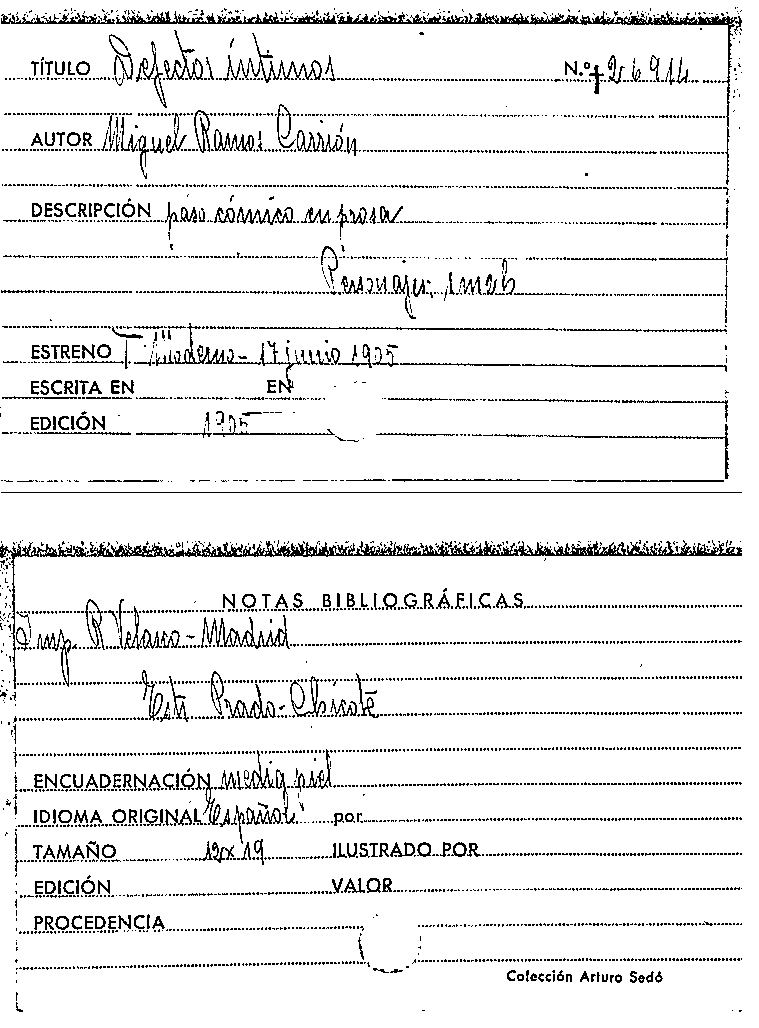 TÍTULO Defectos íntimos N.º + 26914
AUTOR Miguel Ramos Carrión
DESCRIPCIÓN paso cómico en prosa
Personajes: 1 m 2 h
ESTRENO T. Moderno - 17 junio 1905
ESCRITA EN EN
EDICIÓN 1905
NOTAS BIBLIOGRÁFICAS
Imp. R Velasco - Madrid
Estr Prado-Chicote
ENCUADERNACIÓN media piel
IDIOMA ORIGINAL Español por
TAMAÑO 12x19 ILUSTRADO POR
EDICIÓN VALOR
PROCEDENCIA
Colección Arturo Sedó